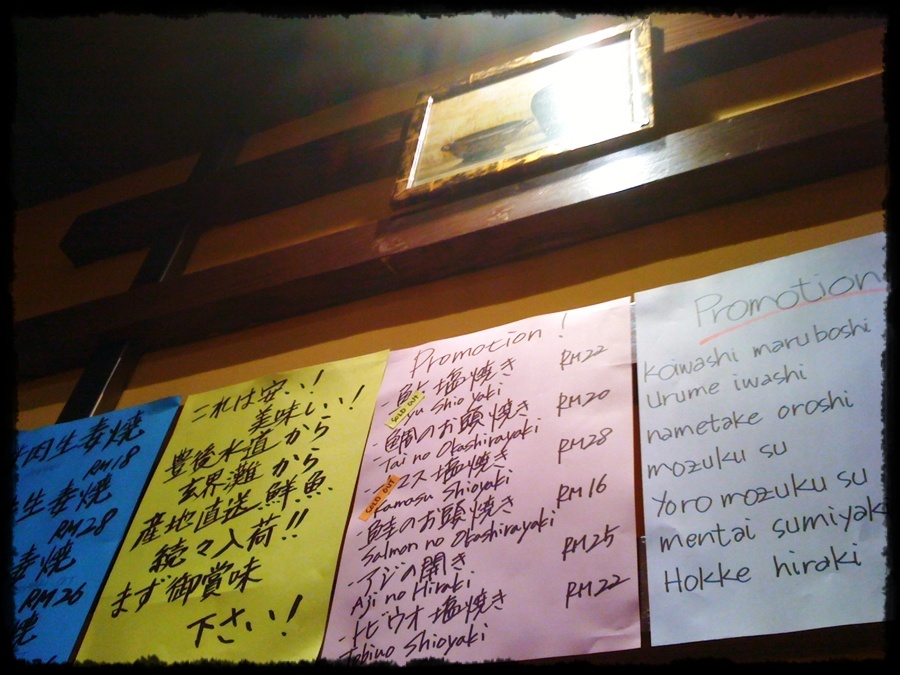 生姜焼
RM18
生姜焼
RM28
姜焼
RM26
焼
これは安い!
美味しい!
豊後水道から
玄界灘から
産地直送鮮魚
続々入荷!!
まず御賞味
下さい!
Promotion!
・鮎塩焼き RM22
SOLD OUT
Ayu Shioyaki
・鯛のお頭焼き RM20
Tai no Okashirayaki
・カマス塩焼き RM28
SOLD OUT
Kamasu Shioyaki
・鮭のお頭焼き RM16
Salmon no Okashirayaki
・アジの開き RM25
Aji no Hiraki
・トビウオ塩焼き RM22
Tobiuo Shioyaki
Promotion
Koiwashi maruboshi
Urume iwashi
nametake oroshi
mozuku su
Yoro mozuku su
mentai sumiyak
Hokke hiraki